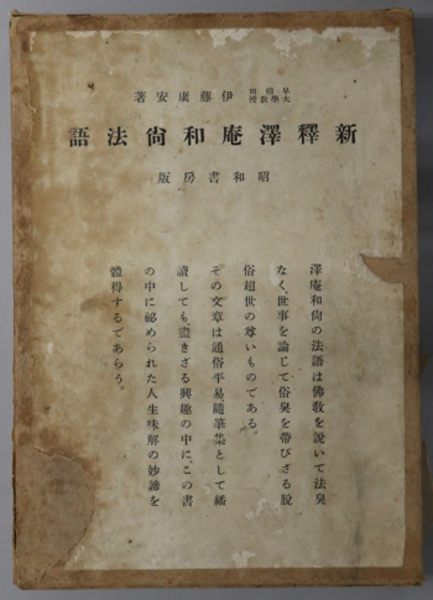 早稻田大學教授 伊藤康安著
新釋澤庵和尙法語
昭和書房版
澤庵和尙の法語は佛敎を說いて法臭
なく、世事を論じて俗臭を帶びざる脫
俗超世の尊いものである。
その文章は通俗平易、隨筆集として繙
讀しても、盡きざる興趣の中に、この書
の中に祕められた人生味解の妙諦を
體得するであらう。